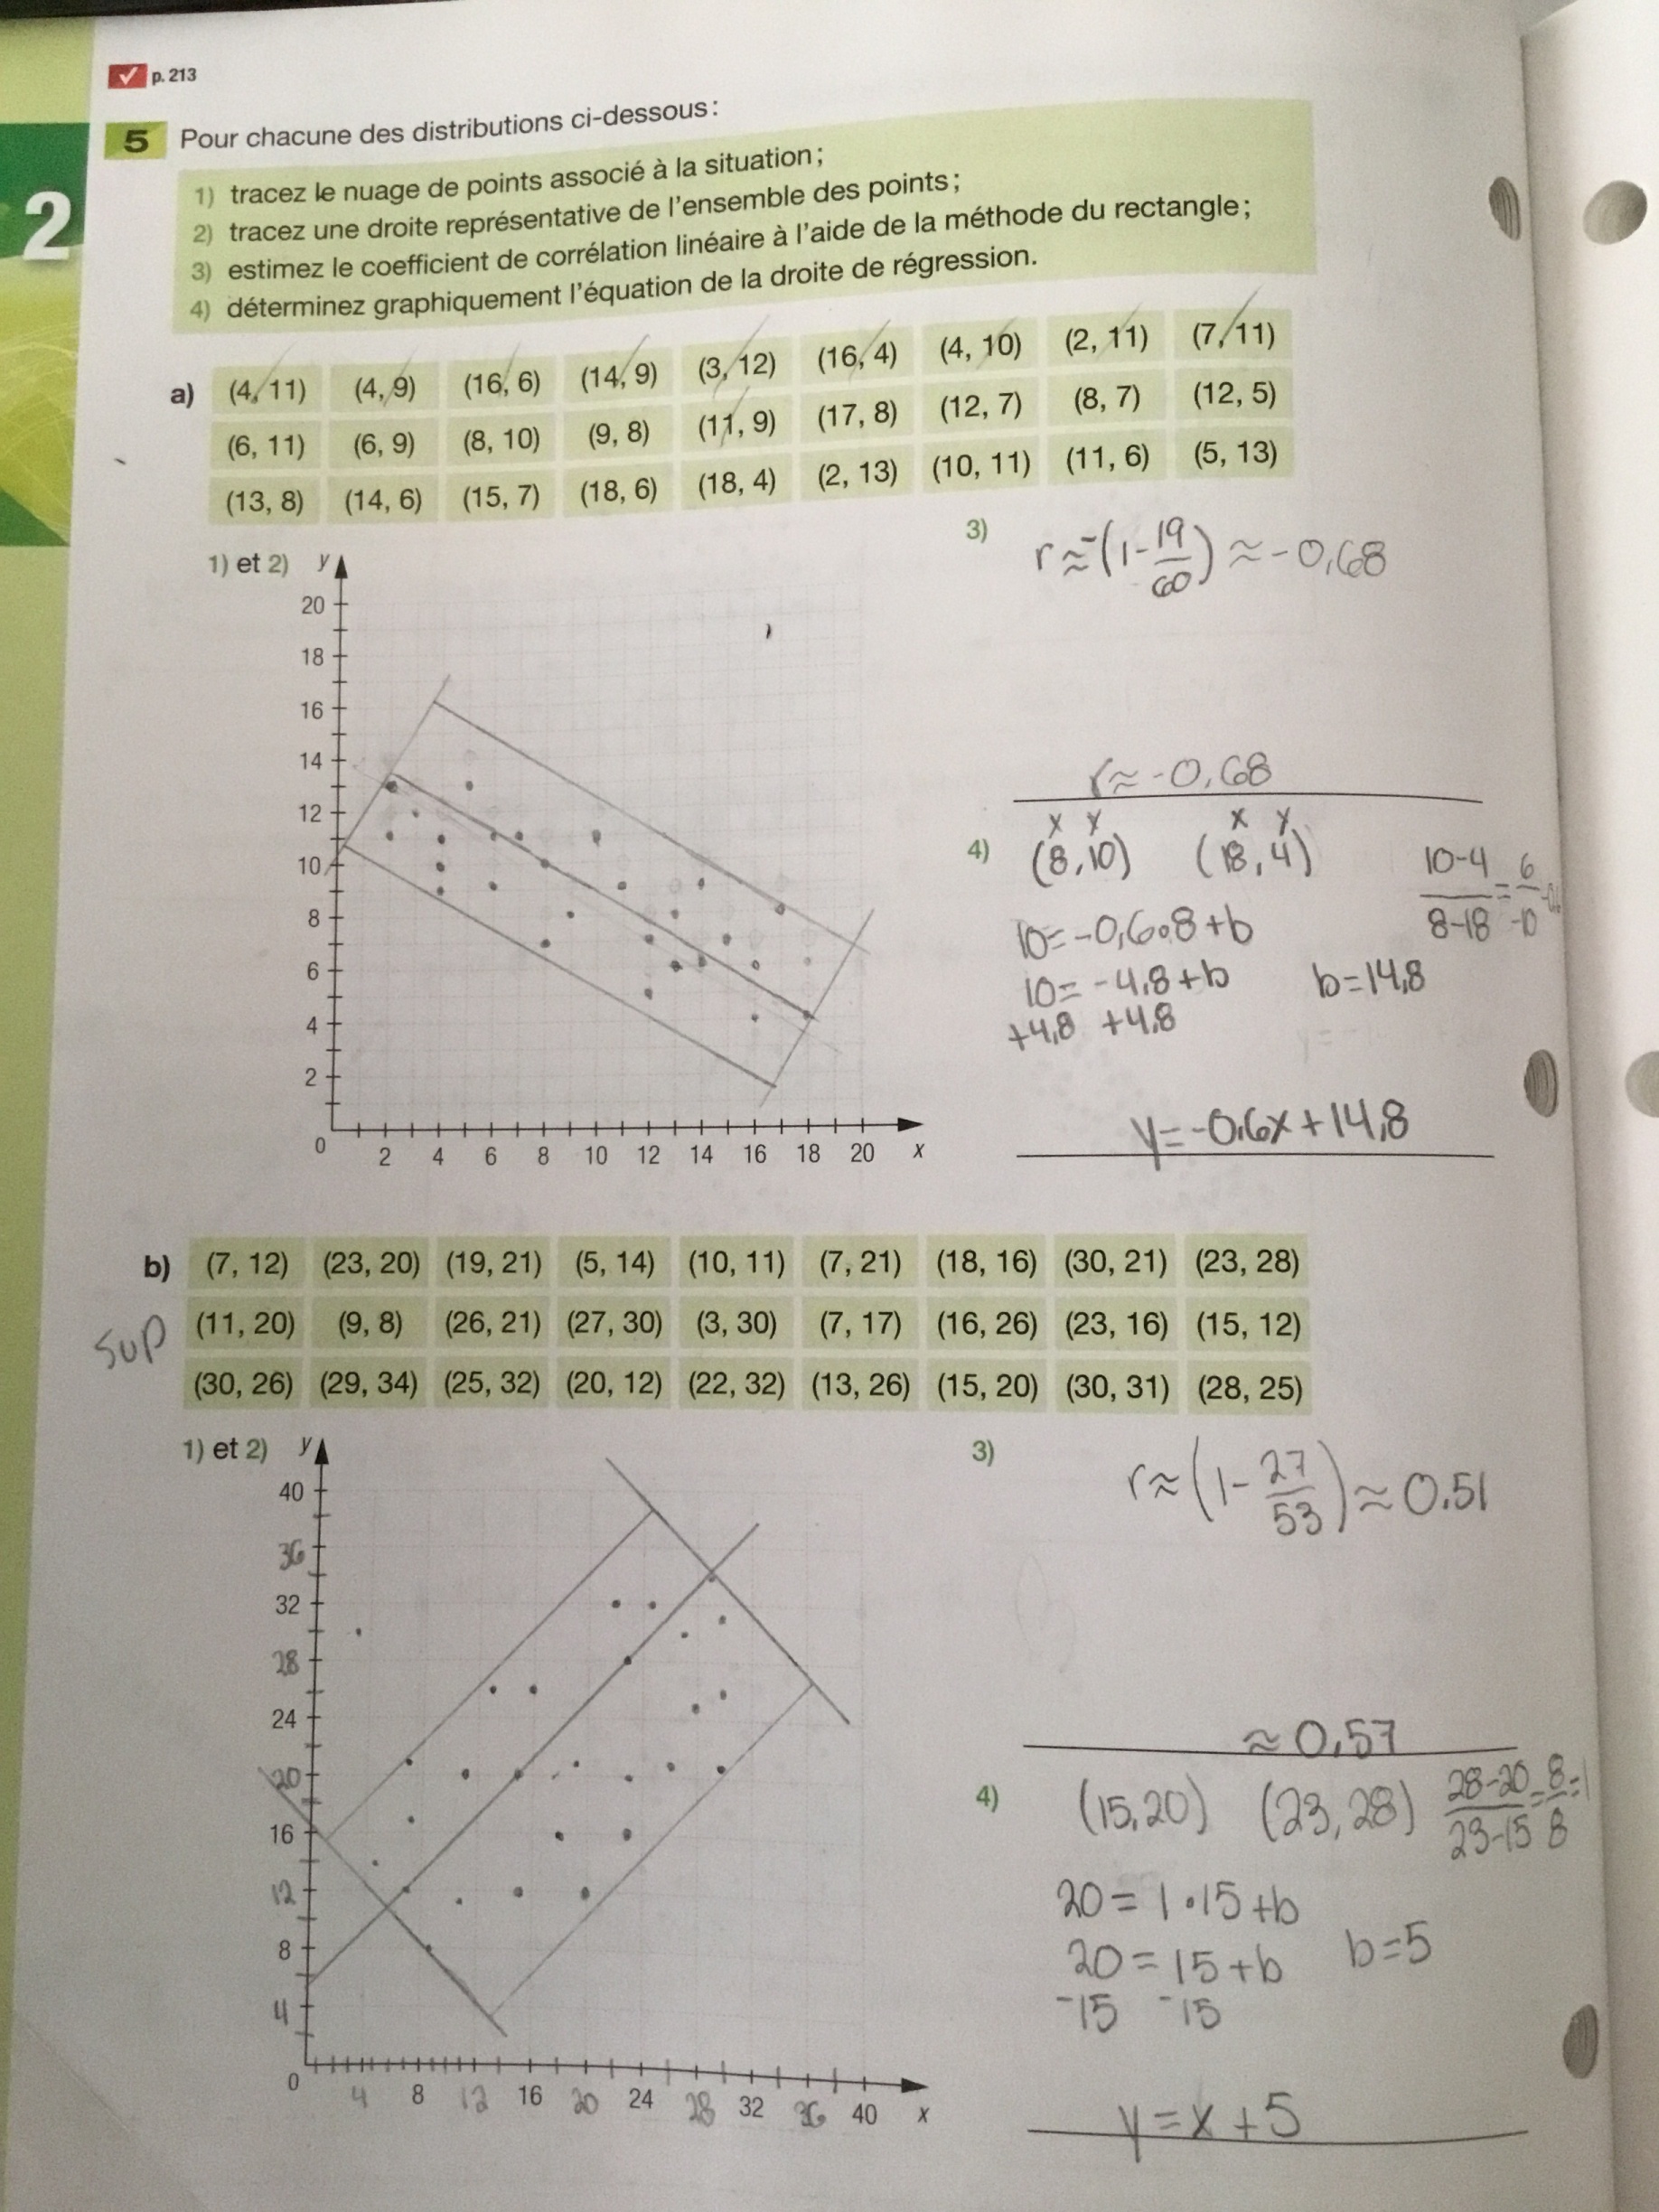 p. 213
2
5 Pour chacune des distributions ci-dessous :
1) tracez le nuage de points associé à la situation ;
2) tracez une droite représentative de l'ensemble des points ;
3) estimez le coefficient de corrélation linéaire à l'aide de la méthode du rectangle ;
4) déterminez graphiquement l'équation de la droite de régression.
a) (4, 11) (4, 9) (16, 6) (14, 9) (3, 12) (16, 4) (4, 10) (2, 11) (7, 11)
(6, 11) (6, 9) (8, 10) (9, 8) (11, 9) (17, 8) (12, 7) (8, 7) (12, 5)
(13, 8) (14, 6) (15, 7) (18, 6) (18, 4) (2, 13) (10, 11) (11, 6) (5, 13)
1) et 2) y
20
18
16
14
12
10
8
6
4
2
0 2 4 6 8 10 12 14 16 18 20 x
3) r ≈ -(1 - 19/60) ≈ -0,68
r ≈ -0,68
x y x y
4) (8, 10) (18, 4) 10-4/8-18 = 6/-10
10 = -0,6•8+b
10 = -4,8+b b=14,8
+4,8 +4,8
y = -0,6x + 14,8
b) (7, 12) (23, 20) (19, 21) (5, 14) (10, 11) (7, 21) (18, 16) (30, 21) (23, 28)
sup (11, 20) (9, 8) (26, 21) (27, 30) (3, 30) (7, 17) (16, 26) (23, 16) (15, 12)
(30, 26) (29, 34) (25, 32) (20, 12) (22, 32) (13, 26) (15, 20) (30, 31) (28, 25)
1) et 2) y
40
36
32
28
24
20
16
12
8
4
0 4 8 12 16 20 24 28 32 36 40 x
3) r ≈ (1 - 27/53) ≈ 0.51
≈ 0,57
4) (15,20) (23,28) 28-20/23-15 = 8/8 = 1
20 = 1•15+b
20 = 15+b b=5
-15 -15
y = x + 5